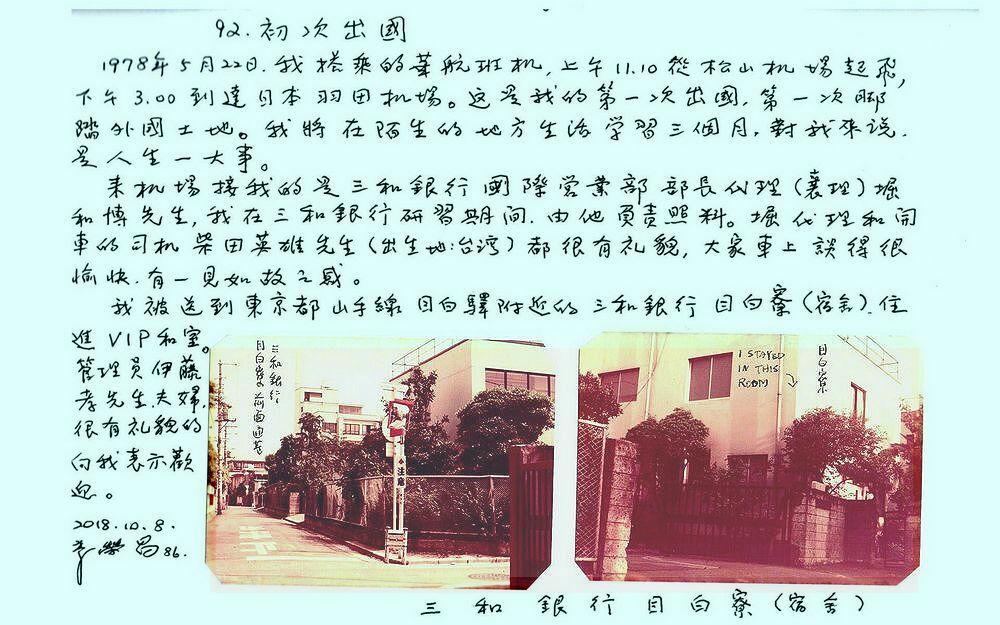 92.初次出國
1978年5月22日.我搭乘的華航班机,上午11.10從松山机場起飛,
下午3.00到達日本羽田机場。这是我的第一次出國.第一次脚
踏外國土地。我將在陌生的地方生活學習三個月.對我來说.
是人生一大事。
来机場接我的是三和銀行國際営業部部長代理(襄理)堀
和博先生,我在三和銀行研習期间.由他負責照料。堀代理和開
車的司机柴田英雄先生(出生地:台湾)都很有礼貌,大家車上談得很
愉快.有一見如故之感。
我被送到東京都山手線目白驛附近的三和銀行目白寮(宿舍).住
進VIP和室。
管理員伊藤
孝先生夫婦.
很有礼貌的
向我表示歡
迎。
2018.10.8.
昌86.
三和銀行
目白寮の前面通巷
注意
目白寮
I STAYED
IN THIS
ROOM
三和銀行目白寮(宿舍)